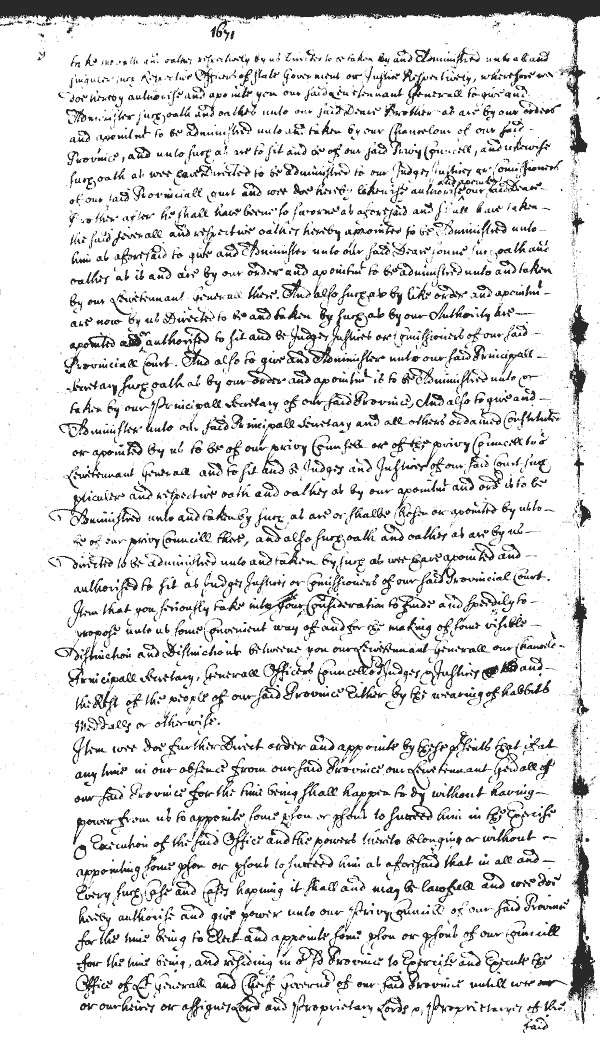 1671
take such oath and oathes respectively by us Directed to be taken by and Administred unto all and
singular such Respective Officers of state Goverment or Justice Respectively, wherefore we
doe hereby authorise and apointe you our said Leivetennant Generall to give and
Administer such oath and oathes unto our said Deare Brother as are by our orders
and apointmt to be administred unto and taken by our Chancelour of our said
Province, and unto such as are to sit and be of our said Privy Councell, and likewise
such oath as wee have Directed to be administred to our Judges Justices or Comissioners
of our said Provinciall Court and wee doe hereby likewise authorise and apointe our said Deare
Brother after he shall have beene so sworne as aforesaid and shall have taken
the said severall and respective oathes hereby appointed to be Administred unto
him as aforesaid to give and Administer unto our said Deare sonne such oath and
oathes as is and are by our order and apointmt to be administred unto and taken
by our Leivetennant generall there. And also such as by like order and apointmt
are now by us Directed to be and taken by such as by our Authority are
apointed and authorised to sit and be Judges Justices or Comissioners of our said
Provinciall Court. And also to give and Administer unto our said Principall
secretary such oath as by our order and appointmt is to be Administred unto or
taken by our Principall Secretary of our said Province, And also to give and
Administer unto our said Principall Secretary and all others ordained Constituted
or apointed by us to be of our privy Counsell or of the privy Councell to our
Leivetennant Generall and to sit and be Judges and Justices of our said Court such
pticuler and respective oath and oathes as by our apointmt and ordr is to be
Administred unto and taken by such as are or shalbe Chosen or apointed by us to
be of our privy Councill there, and also such oath and oathes as are by us
Directed to be administred unto and taken by such as wee have apointed and
authorised to sit as Judges Justices or Comissioners of our said Provincial Court.
Item that you seriously take into your Consideration to finde and speedily to
propose unto us some Convenient way of and for the making of some visible
distinction and Distinctions betweene you our Leivetennant generall our Chancelor
Principall Secretary, Generall Officers Councellors Judges & Justices and
the Rest of the people of our said Province Either by the wearing of habbits
Meddalls or otherwise.
Item wee doe further Direct order and appointe by these psents that if at
any time in our absence from our said Province our Leivetennant Genall of
our said Province for the time being shall happen to dy without having
power from us to appointe some pson or psons to succeed him in the Exercise
& Execution of the said Office and the powers thereto belonging or without
appointing some pson or psons to succeed him as aforesaid that in all and
Every such Case and Cases hapning it shall and may be lawfull and wee doe
hereby authorise and give power unto our Privy Councill of our said Province
for the time being to Elect and appointe some pson or psons of our Councill
for the time being, and residing in or sd Province to Exercise and Execute the
Office of Lt generall and Cheif Governr of our said Province untill wee or
or our heires or assignes Lord and Proprietary Lords & Proprietaryes of the
said